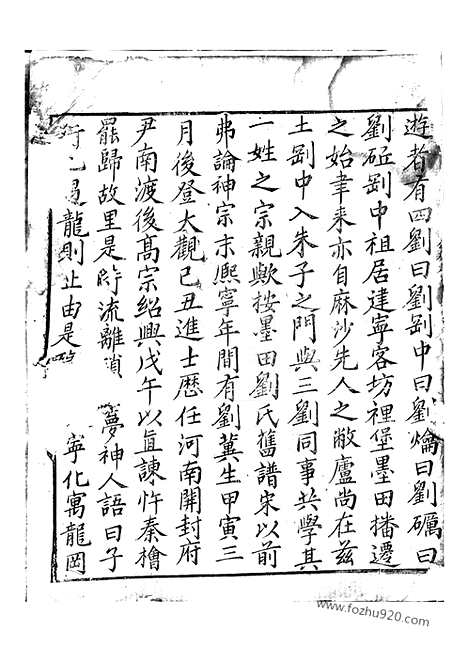 遊者有四劉曰劉剛中曰劉爚曰劉礪曰
劉砥剛中祖居建寧客坊裡堡墨田播遷
之始聿来亦自麻沙先人之敝廬尚在兹
土剛中入朱子之門與三劉同事共學其
一姓之宗親歟按墨田劉氏舊譜宋以前
弗論神宗末熈寧年間有劉蓂生甲寅三
月後登大觀己丑進士歷任河南開封府
尹南渡後高宗紹興戊午以直諫忤秦檜
罷歸故里是時流離瑣 夢神人語曰子
行 遇龍則止由是 寧化寓龍岡
www.fozhu920.com